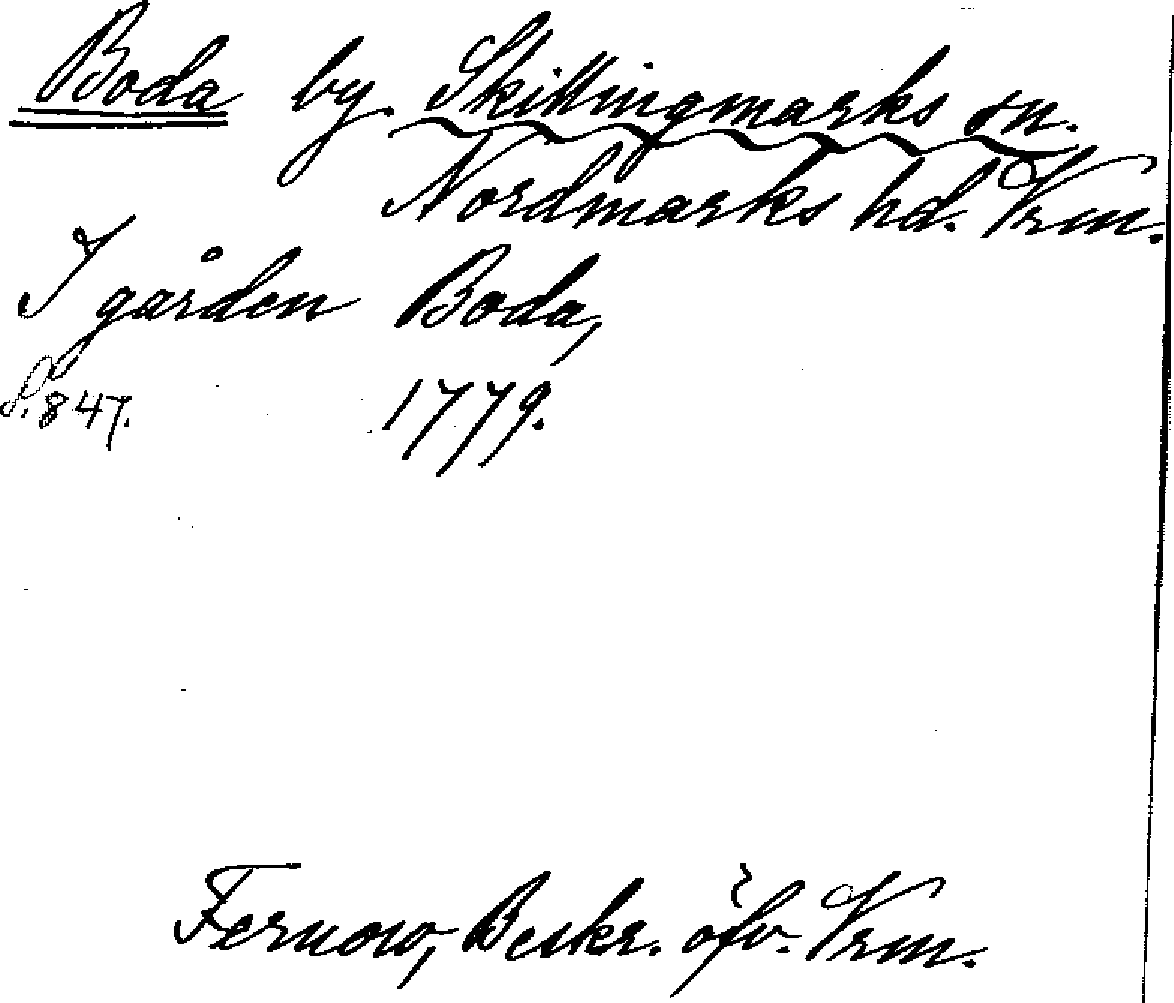 Boda by. Skillingmarks sn.
Nordmarks hd. Vrm.
I gården Boda,
S. 847. 1779.
Fernow, Beskr. öfv. Vrm.